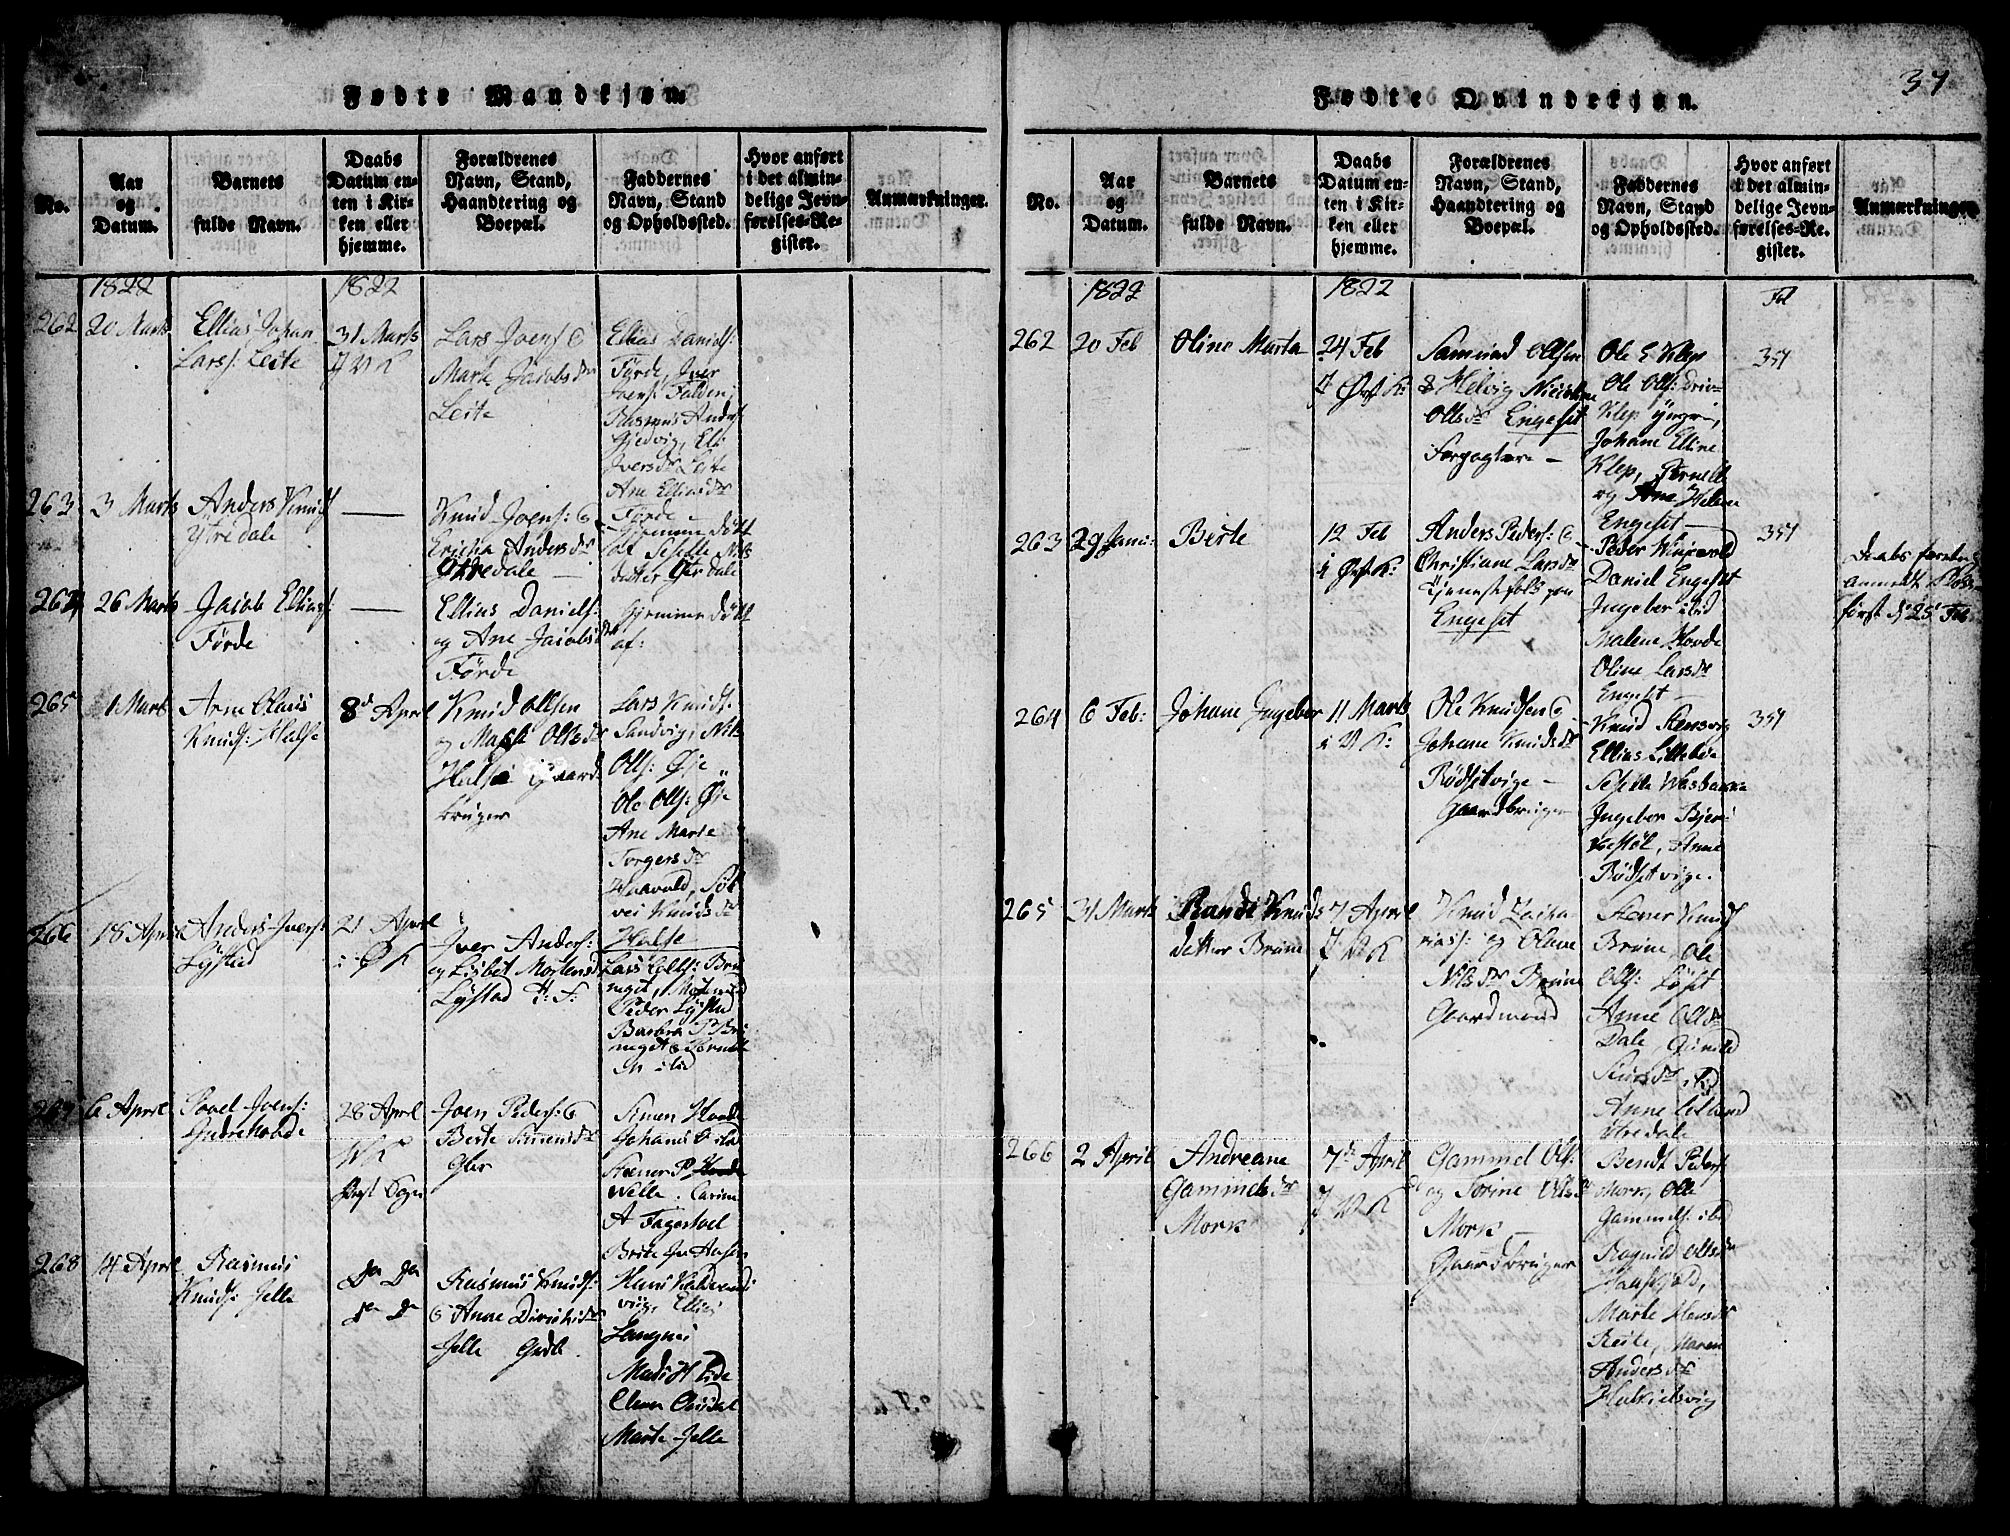 37
Fødte Mandkjøn.
No.
Aar
og
Datum.
Barnets
fulde Navn.
Daabs
Datum en-
ten i Kir-
ken eller
hjemme.
Forældrenes
Navn, Stand,
Haandtering og
Boepæl.
Faddernes
Navn, Stand
og Opholdssted.
Hvor anført
i det almin-
delige Jevn-
førelses-Re-
gister.
Anmærkninger.
1822
1822
262
20 Marts
Ellias Johan
Lars: Leite
31 Marts
J V K
Lars Joens: &
Marte Jacobsdr
Leite
Ellias Daniels:
Förde, Iver
Joens: Falden,
Rasmus Anders
Gjedvig, Eli
Iversdr Leite
Ane Elliasdr
Förde
263
3 Marts
Anders Knuds
Ytredale
Knud Joens: &
Ericha Andersdr
Ytredale
Hjemme döbt
af Seselle Nils
datter Ytredale
264
26 Marts
Jacob Ellias:
Förde
Ellias Daniels:
og Ane Jacobsdr
Förde
Hjemme döbt
af:
265
1 Marts
Arne Olaus
Knuds: Halse
8d April
Knud Olsen
og Massi Olsdr
Halse Gaard
bruger
Lars Knuds:
Sandvig, Nils
Olls: Øie
Ole Olls: Øie
Ane Marte
Torgersdr
Haavold, Söl
vei Knudsdr
Halse
266
18 April
Anders Ivers:
Lystad
21 April
i Ø K
Iver Anders:
og Lisbet Mortensd
Lystad H: F:
Lars Olls: Bru
neget,
Peder Lystad
Barbra P Bru
neget &
ibid
267
6 April
Povel Joens:
Indrehovde
28 April
V K
Joen Peders: &
Berte Simensdr
Simen Hovde
Johans ibid
Steener P Hovde
Welle. Carine
A Fagerhoel
Brite
268
14 April
Rasmus
Knuds: Jelle
Do Do
Do Do
Rasmus Knuds:
& Anne
Jelle
Hans
vig, Ellias
Langnes
Mads H Lide
Marte Jelle
Fødte Qvindekjøn.
No.
Aar
og
Datum.
Barnets
fulde Navn.
Daabs
Datum en-
ten i Kir-
ken eller
hjemme.
Forældrenes
Navn, Stand,
Haandtering og
Boepæl.
Faddernes
Navn, Stand
og Opholdssted.
Hvor anført
i det almin-
delige Jevn-
førelses-Re-
gister.
Anmærkninger.
1822
1822
Fol
262
20 Feb
Oline Marta
24 Feb
J Øst K:
Samund Ollsen
& Helvig Nicoline
Ollsdr Engeset
Forpagtere
Ole E Klep
Ole Olls:
Klep yngre,
Johane Elline
Klep, Pernelle
og Ane Helene
Engeset
354
263
29 Janu:
Berte
12 Feb
i Øst K:
Anders Peders: &
Christiane Larsdr
Tjenestefolk paa
Engeset
Peder
Daniel Engeset
Ingebor ibid
Malene Hovde
Oline Larsdr
Engeset
354
Daabs
anmeldt
först d: 25 Feb:
264
6 Feb:
Johane Ingebor
11 Marts
i V K:
Ole Knudsen &
Johane Knudsdr
Rödsetvige
Gaardbruger
Knud Stensvig
Ellias Lilleböe
Seselle
Ingebor Bjer
kestöl, Anne
Rödsetvige.
354
265
31 Marts
Rande Knuds
detter Brune
7 April
J: V K
Knud Zacha
rias: og Olave
Nilsdr Brune
Gaardmand
Stener Knuds
Brune, Ole
Olls: Löset
Anne Olsdr
Dale, Gunild
ibid
Anne
Ytredale
266
2 April
Andreane
Gammelsdr
Mork
7d April
J V K
Gammel Ols:
og Torine Ollsdr
Mork
Gaardbruger
Bendt Peders
Mork, Olle
Gammels: ibid
Ragnild Ollsdr
Marte Hansdr
Reite, Maren
Andersdr
Halkielsvig